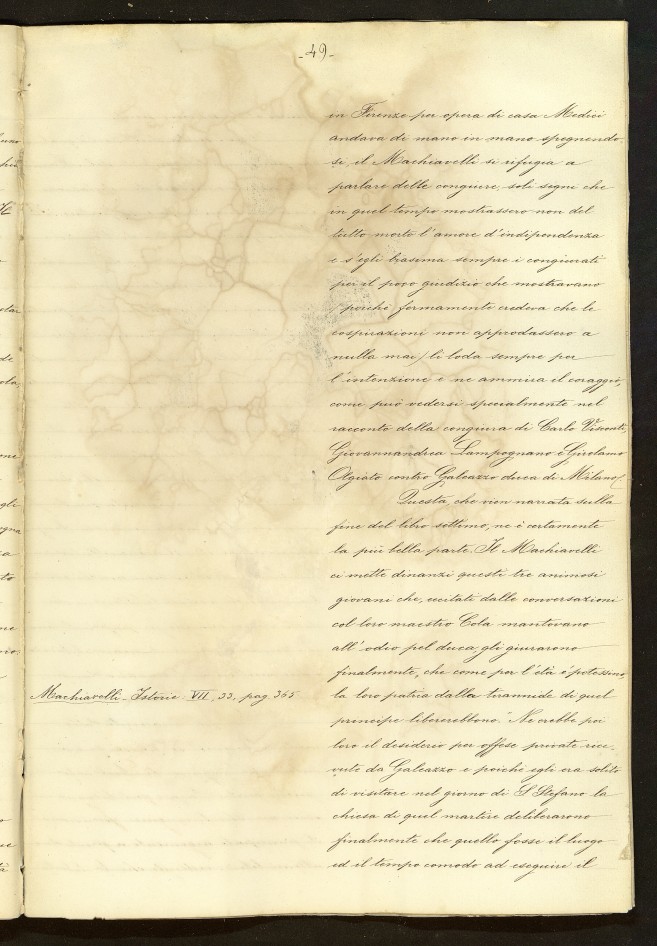 - 49 -
in Firenze per opera di casa Medici
andava di mano in mano spegnendo-
si, il Machiavelli si rifugia a
parlare delle congiure, soli segni che
in quel tempo mostrassero non del
tutto morto l'amore d'indipendenza
e s'egli biasima sempre i congiurati
per il poco giudizio che mostravano
(perché fermamente credeva che le
cospirazioni non approdassero a
nulla mai) li loda sempre per
l'intenzione e ne ammira il coraggio,
come può vedersi specialmente nel
racconto della congiura di Carlo Visconti,
Giovannandrea Lampognano e Girolamo
Olgiato contro Galeazzo duca di Milano.
Questa, che vien narrata sulla
fine del libro settimo, ne è certamente
la più bella parte. Il Machiavelli
ci mette dinanzi questi tre animosi
giovani che, eccitati dalle conversazioni
col loro maestro Cola mantovano
all'odio pel duca, gli giurarono
finalmente, che come per l'età e' potessino
Machiavelli - Istorie VII, 33, pag 365
la loro patria dalla tirannide di quel
principe libererebbono." Ne crebbe poi
loro il desiderio per offese private rice-
vute da Galeazzo e poichè egli era solito
di visitare nel giorno di S Stefano la
chiesa di quel martire deliberarono
finalmente che quello fosse il luogo
ed il tempo comodo ad eseguire il